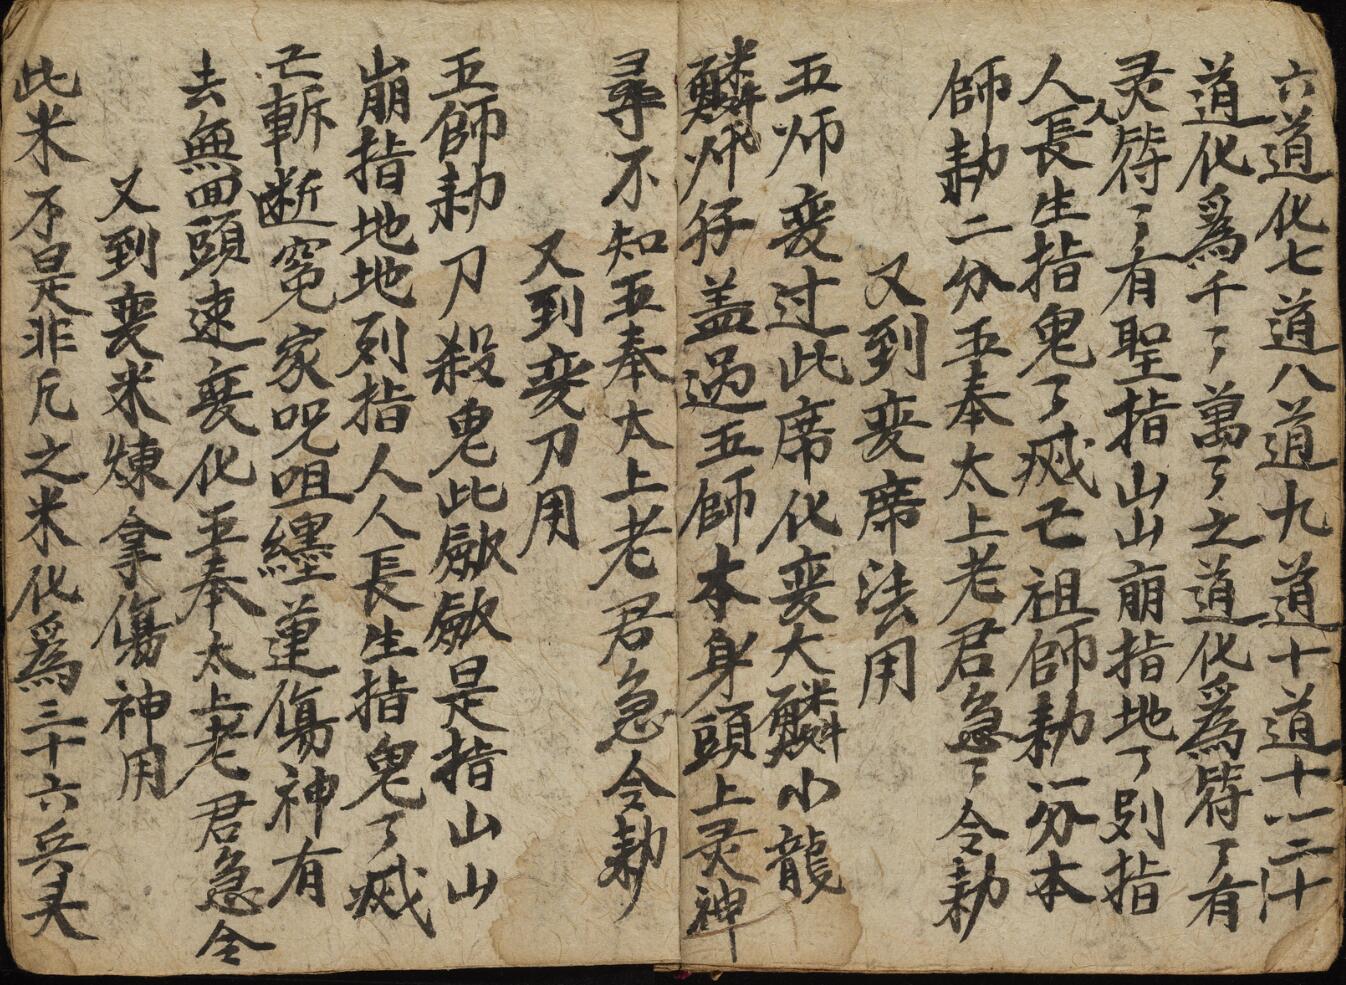 六道化七道八道九道十道十一二十
道化爲千了萬了之道化爲符了有
灵符了有聖指山山崩指地了列指人
人長生指鬼了滅亡祖師勑一分本
師勑二分五奉太上老君急了令勑
又到喪席法用
五师喪过此席化喪大麟小龍
麟师仔盖过五師本身頭上灵神
尋不知五奉太上老君急令勑
又到喪刀用
五師勑刀殺鬼此歛歛是指山山
崩指地地列指人人長生指鬼了滅
亡斬断冤家咒咀纒運傷神有
去無回頭速喪化五奉太上老君急令
又到喪米煉拿傷神用
此米不是非凡之米化爲三十六兵夫